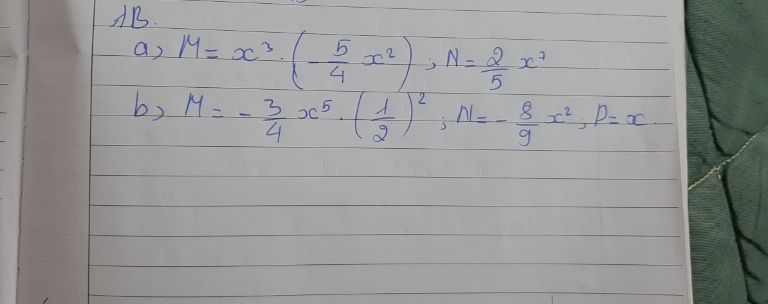 1B.
a) M = x³.(-5/4 x²) ; N = 2/5 x⁷
b) M = -3/4 x⁵.(1/2)² ; N = -8/9 x² ; P = x.